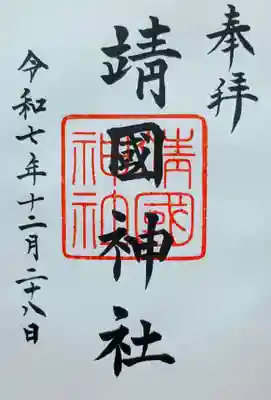 奉拝
靖國神社
靖國
神社
令和七年十二月二十八日